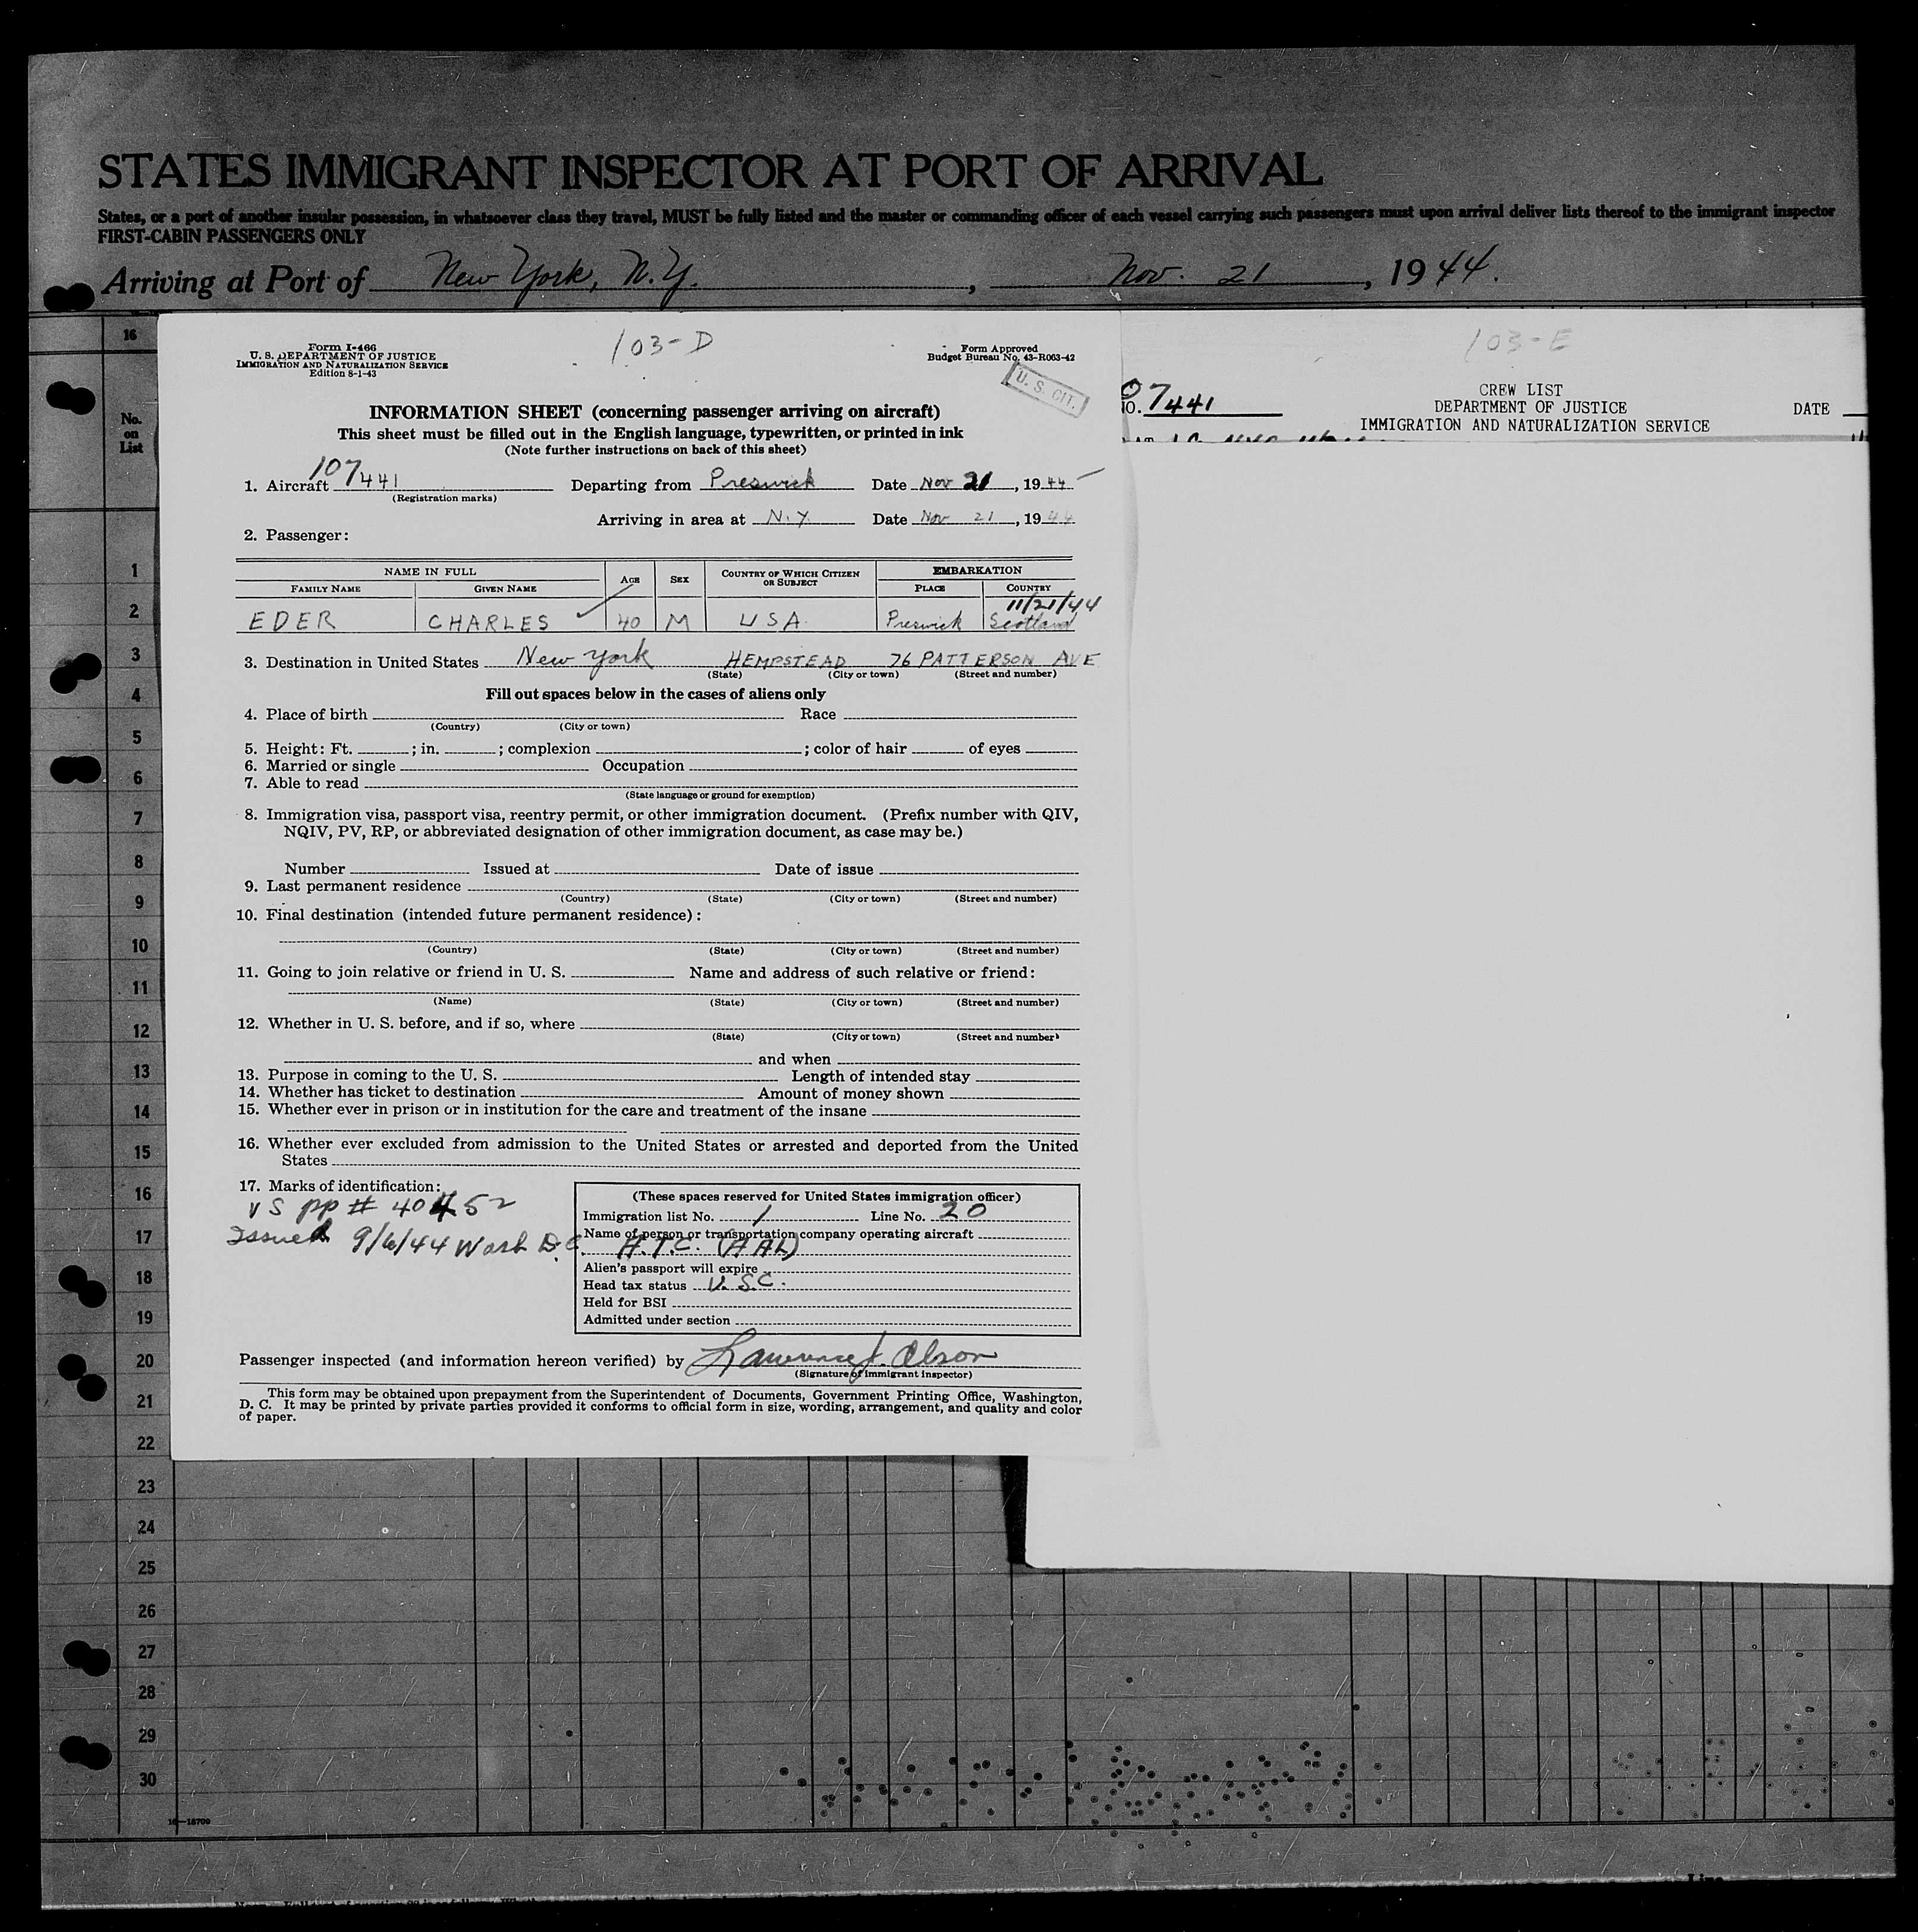 STATES IMMIGRANT INSPECTOR AT PORT OF ARRIVAL
States, or a port of another insular possession, in whatsoever class they travel, MUST be fully listed and the master or commanding officer of each vessel carrying such passengers must upon arrival deliver lists thereof to the immigrant inspector
FIRST-CABIN PASSENGERS ONLY
Arriving at Port of New York, N.Y. , Nov. 21 , 1944.
16
No. on List
1
2
3
4
5
6
7
8
9
10
11
12
13
14
15
16
17
18
19
20
21
22
23
24
25
26
27
28
29
30
16—18700
103-D
Form I-466
U. S. DEPARTMENT OF JUSTICE
IMMIGRATION AND NATURALIZATION SERVICE
Edition 8-1-43
Form Approved
Budget Bureau No. 43-R063-42
U. S. CIT.
INFORMATION SHEET (concerning passenger arriving on aircraft)
This sheet must be filled out in the English language, typewritten, or printed in ink
(Note further instructions on back of this sheet)
1. Aircraft 107441 Departing from Preswick Date Nov 21, 1944
(Registration marks)
Arriving in area at N.Y. Date Nov 21, 1944
2. Passenger:
NAME IN FULL AGE SEX COUNTRY OF WHICH CITIZEN OR SUBJECT EMBARKATION
FAMILY NAME GIVEN NAME PLACE COUNTRY
11/21/44
EDER CHARLES 40 M USA. Preswick Scotland
3. Destination in United States New York HEMPSTEAD 76 PATTERSON AVE
(State) (City or town) (Street and number)
Fill out spaces below in the cases of aliens only
4. Place of birth Race
(Country) (City or town)
5. Height: Ft. ; in. ; complexion ; color of hair of eyes
6. Married or single Occupation
7. Able to read
(State language or ground for exemption)
8. Immigration visa, passport visa, reentry permit, or other immigration document. (Prefix number with QIV,
NQIV, PV, RP, or abbreviated designation of other immigration document, as case may be.)
Number Issued at Date of issue
9. Last permanent residence
(Country) (State) (City or town) (Street and number)
10. Final destination (intended future permanent residence):
(Country) (State) (City or town) (Street and number)
11. Going to join relative or friend in U. S. Name and address of such relative or friend:
(Name) (State) (City or town) (Street and number)
12. Whether in U. S. before, and if so, where
(State) (City or town) (Street and number)
and when
13. Purpose in coming to the U. S. Length of intended stay
14. Whether has ticket to destination Amount of money shown
15. Whether ever in prison or in institution for the care and treatment of the insane
16. Whether ever excluded from admission to the United States or arrested and deported from the United
States
17. Marks of identification:
VS pp # 40452
Issued 9/6/44 Wash D.C.
(These spaces reserved for United States immigration officer)
Immigration list No. 1 Line No. 20
Name of person or transportation company operating aircraft
A.T.C. (AAL)
Alien's passport will expire
Head tax status U.S.C.
Held for BSI
Admitted under section
Passenger inspected (and information hereon verified) by Lawrence J. Olson
(Signature of immigrant inspector)
This form may be obtained upon prepayment from the Superintendent of Documents, Government Printing Office, Washington,
D. C. It may be printed by private parties provided it conforms to official form in size, wording, arrangement, and quality and color
of paper.
103-E
CREW LIST
DEPARTMENT OF JUSTICE
IMMIGRATION AND NATURALIZATION SERVICE
NO. 07441
DATE